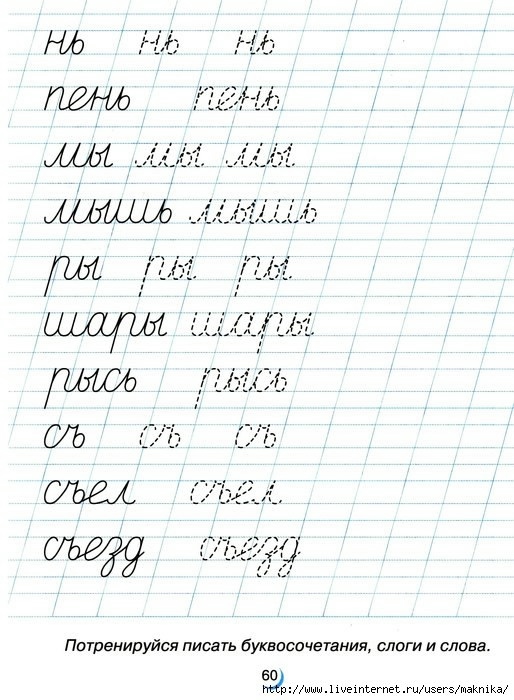 нь нь нь
пень пень
мы мы мы
мышь мышь
ры ры ры
шары шары
рысь рысь
съ съ съ
съел съел
съезд съезд
Потренируйся писать буквосочетания, слоги и слова.
60
http://www.liveinternet.ru/users/maknika/